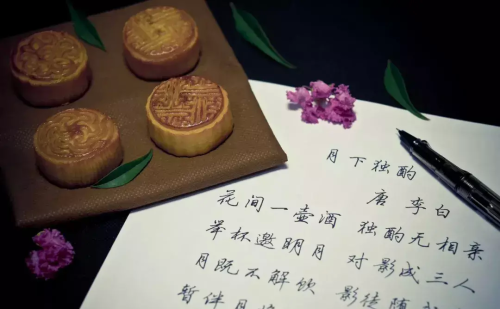 月下独酌
唐 李白
花间一壶酒 独酌无相亲
举杯邀明月 对影成三人
月既不解饮 影徒随
暂伴月